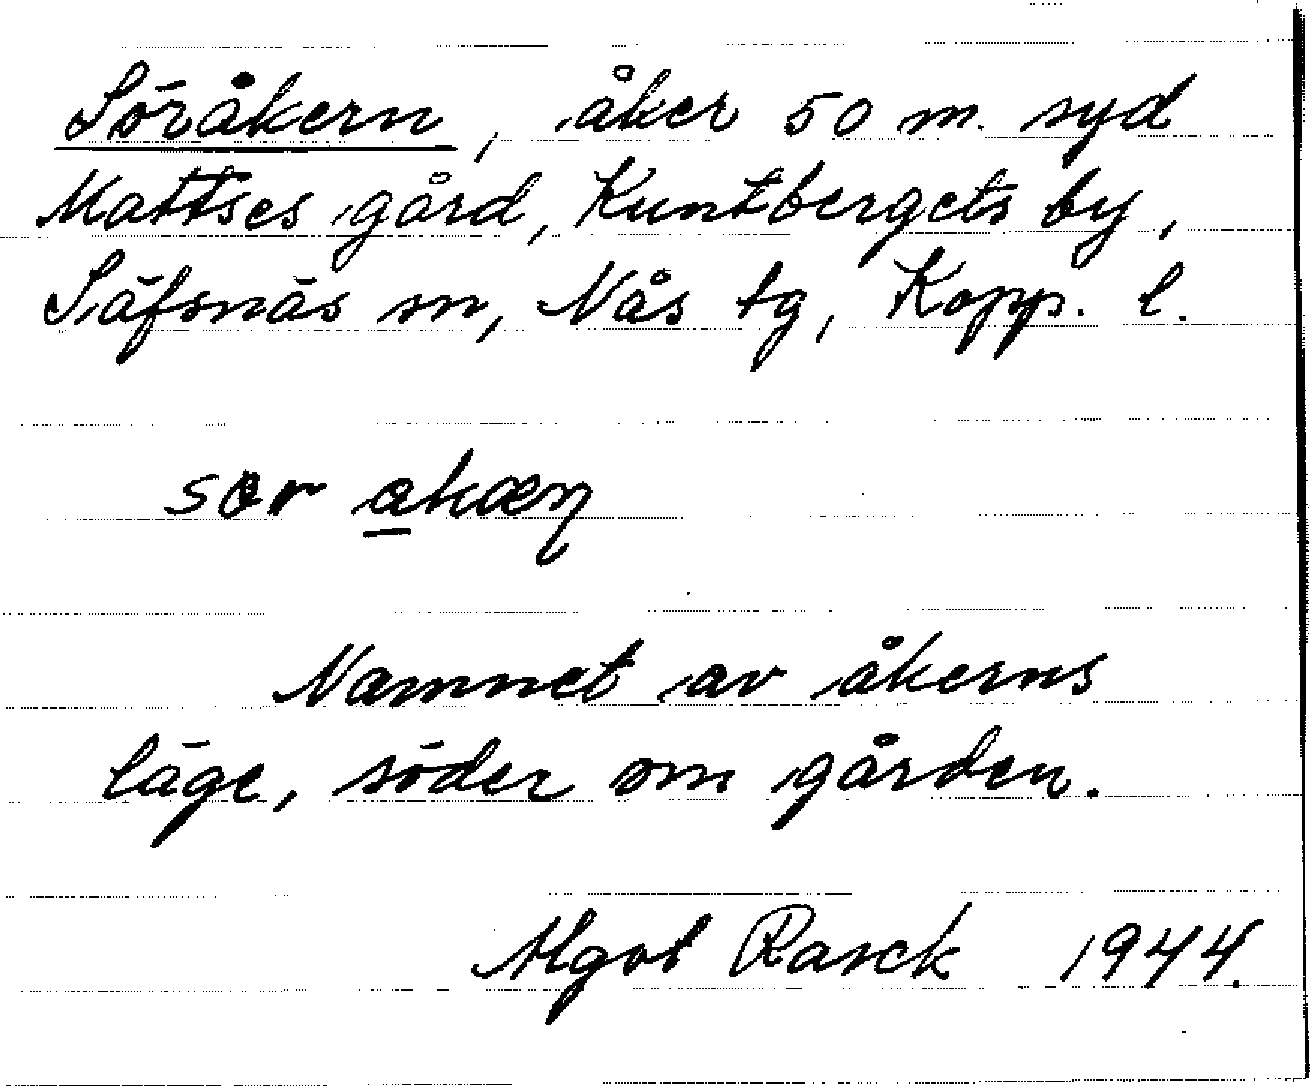 Söråkern, åker 50 m. syd
Mattses gård, Kuntbergets by,
Säfsnäs sn, Nås tg, Kopp. l.
Namnet av åkerns
läge, söder om gården.
Algot Rasck 1944.